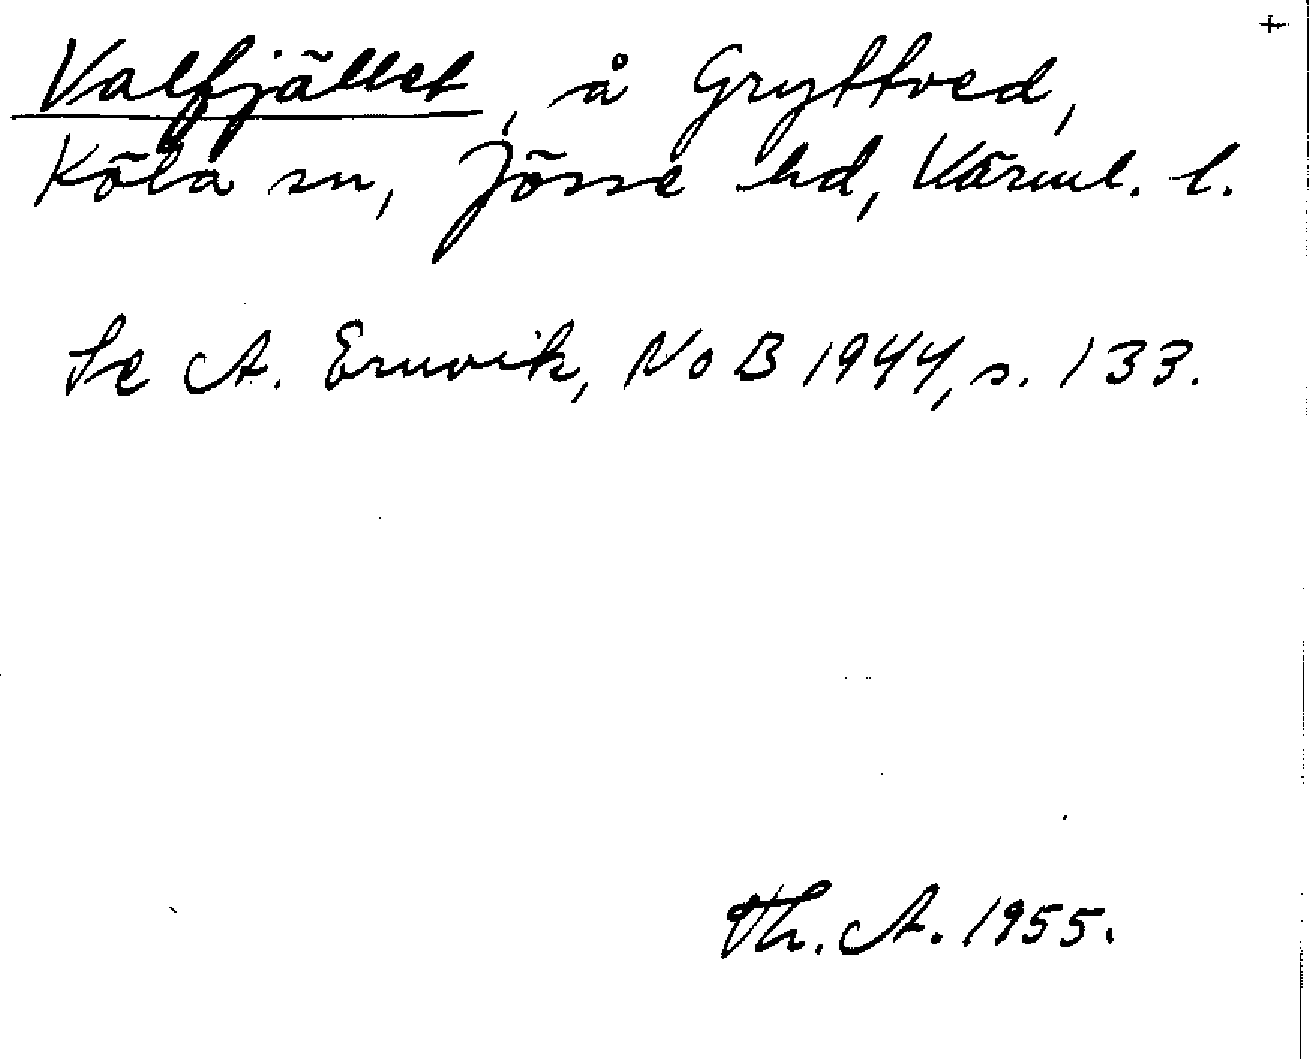 +
Valfjället, å Gryttved,
Köla sn, Jösse hd, Värml. l.
Se A. Ernvik, NoB 1944, s. 133.
Th. A. 1955.